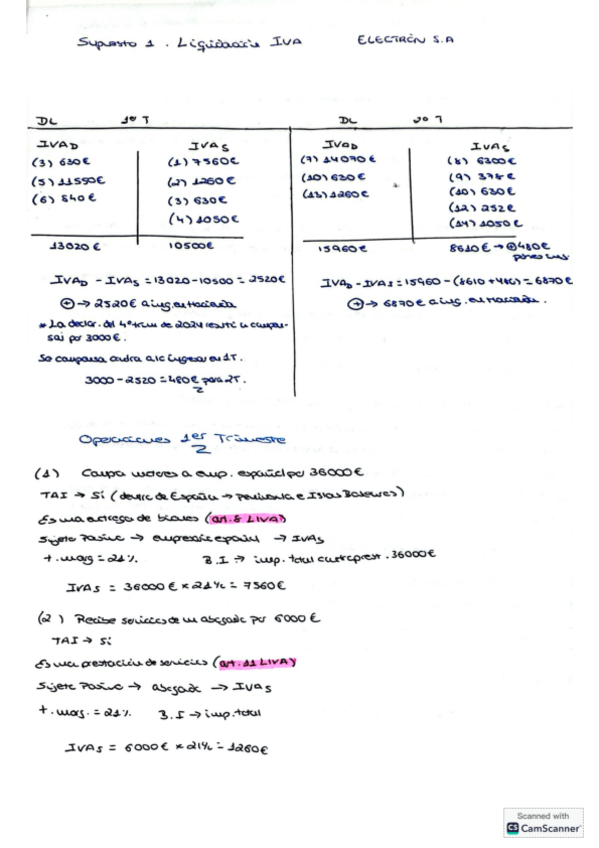 Supuesto 1. Liquidación IVA ELECTRÓN S.A
DL 1º T
IVAD IVAS
(3) 630€ (1) 7560€
(5) 11550€ (2) 1260€
(6) 840€ (3) 630€
(4) 1050€
13020€ 10500€
IVAD - IVAS = 13020-10500 = 2520€
+ → 2520€ a ing. en Hacienda
* La declar. del 4º trim de 2024 resultó a compen-
sar por 3000€.
Se compensa contra a/c ingresar en 1T.
3000-2520 = 480€ para 2T.
DL 2º T
IVAD IVAS
(7) 14070€ (8) 6300€
(10) 630€ (9) 378€
(13) 1260€ (10) 630€
(12) 252€
(14) 1050€
15960€ 8610€ → + 480€
IVAD - IVAS = 15960 - (8610 + 480) = 6870€
+ → 6870€ a ing. en Hacienda.
Operaciones 1er Trimestre
(1) Compra motores a emp. español por 36000€
TAI → Sí (dentro de España → península e Islas Baleares)
Es una entrega de bienes (art. 8 LIVA)
Sujeto Pasivo → empresario español → IVAS
t. marg = 21% B.I → imp. total contraprest. 36000€
IVAS = 36000€ × 21% = 7560€
(2) Recibe servicios de un abogado por 6000€
TAI → Sí
Es una prestación de servicios (art. 11 LIVA)
Sujeto Pasivo → abogado → IVAS
t. marg. = 21% B.I → imp. total
IVAS = 6000€ × 21% = 1260€
Scanned with
CS CamScanner